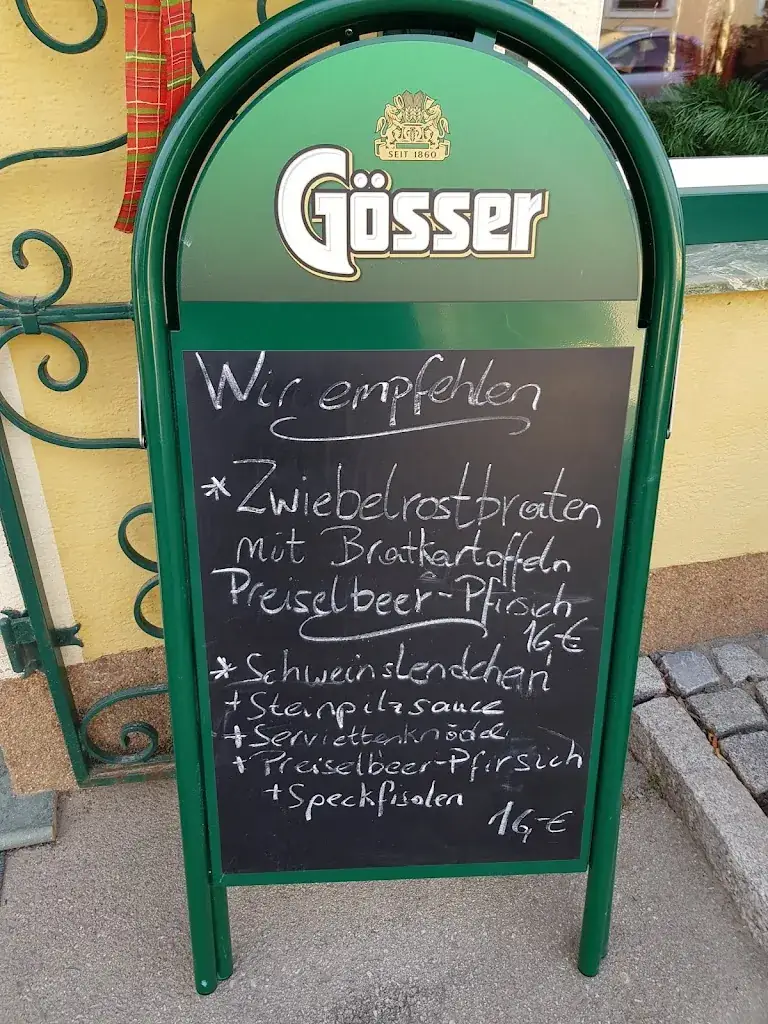 SEIT 1860
Gösser
Wir empfehlen
* Zwiebelrostbraten
mit Bratkartoffeln
Preiselbeer-Pfirsich
16,-€
* Schweinslendchen
+ Steinpilzsauce
+ Serviettenknödel
+ Preiselbeer-Pfirsich
+ Speckfisolen
16,-€